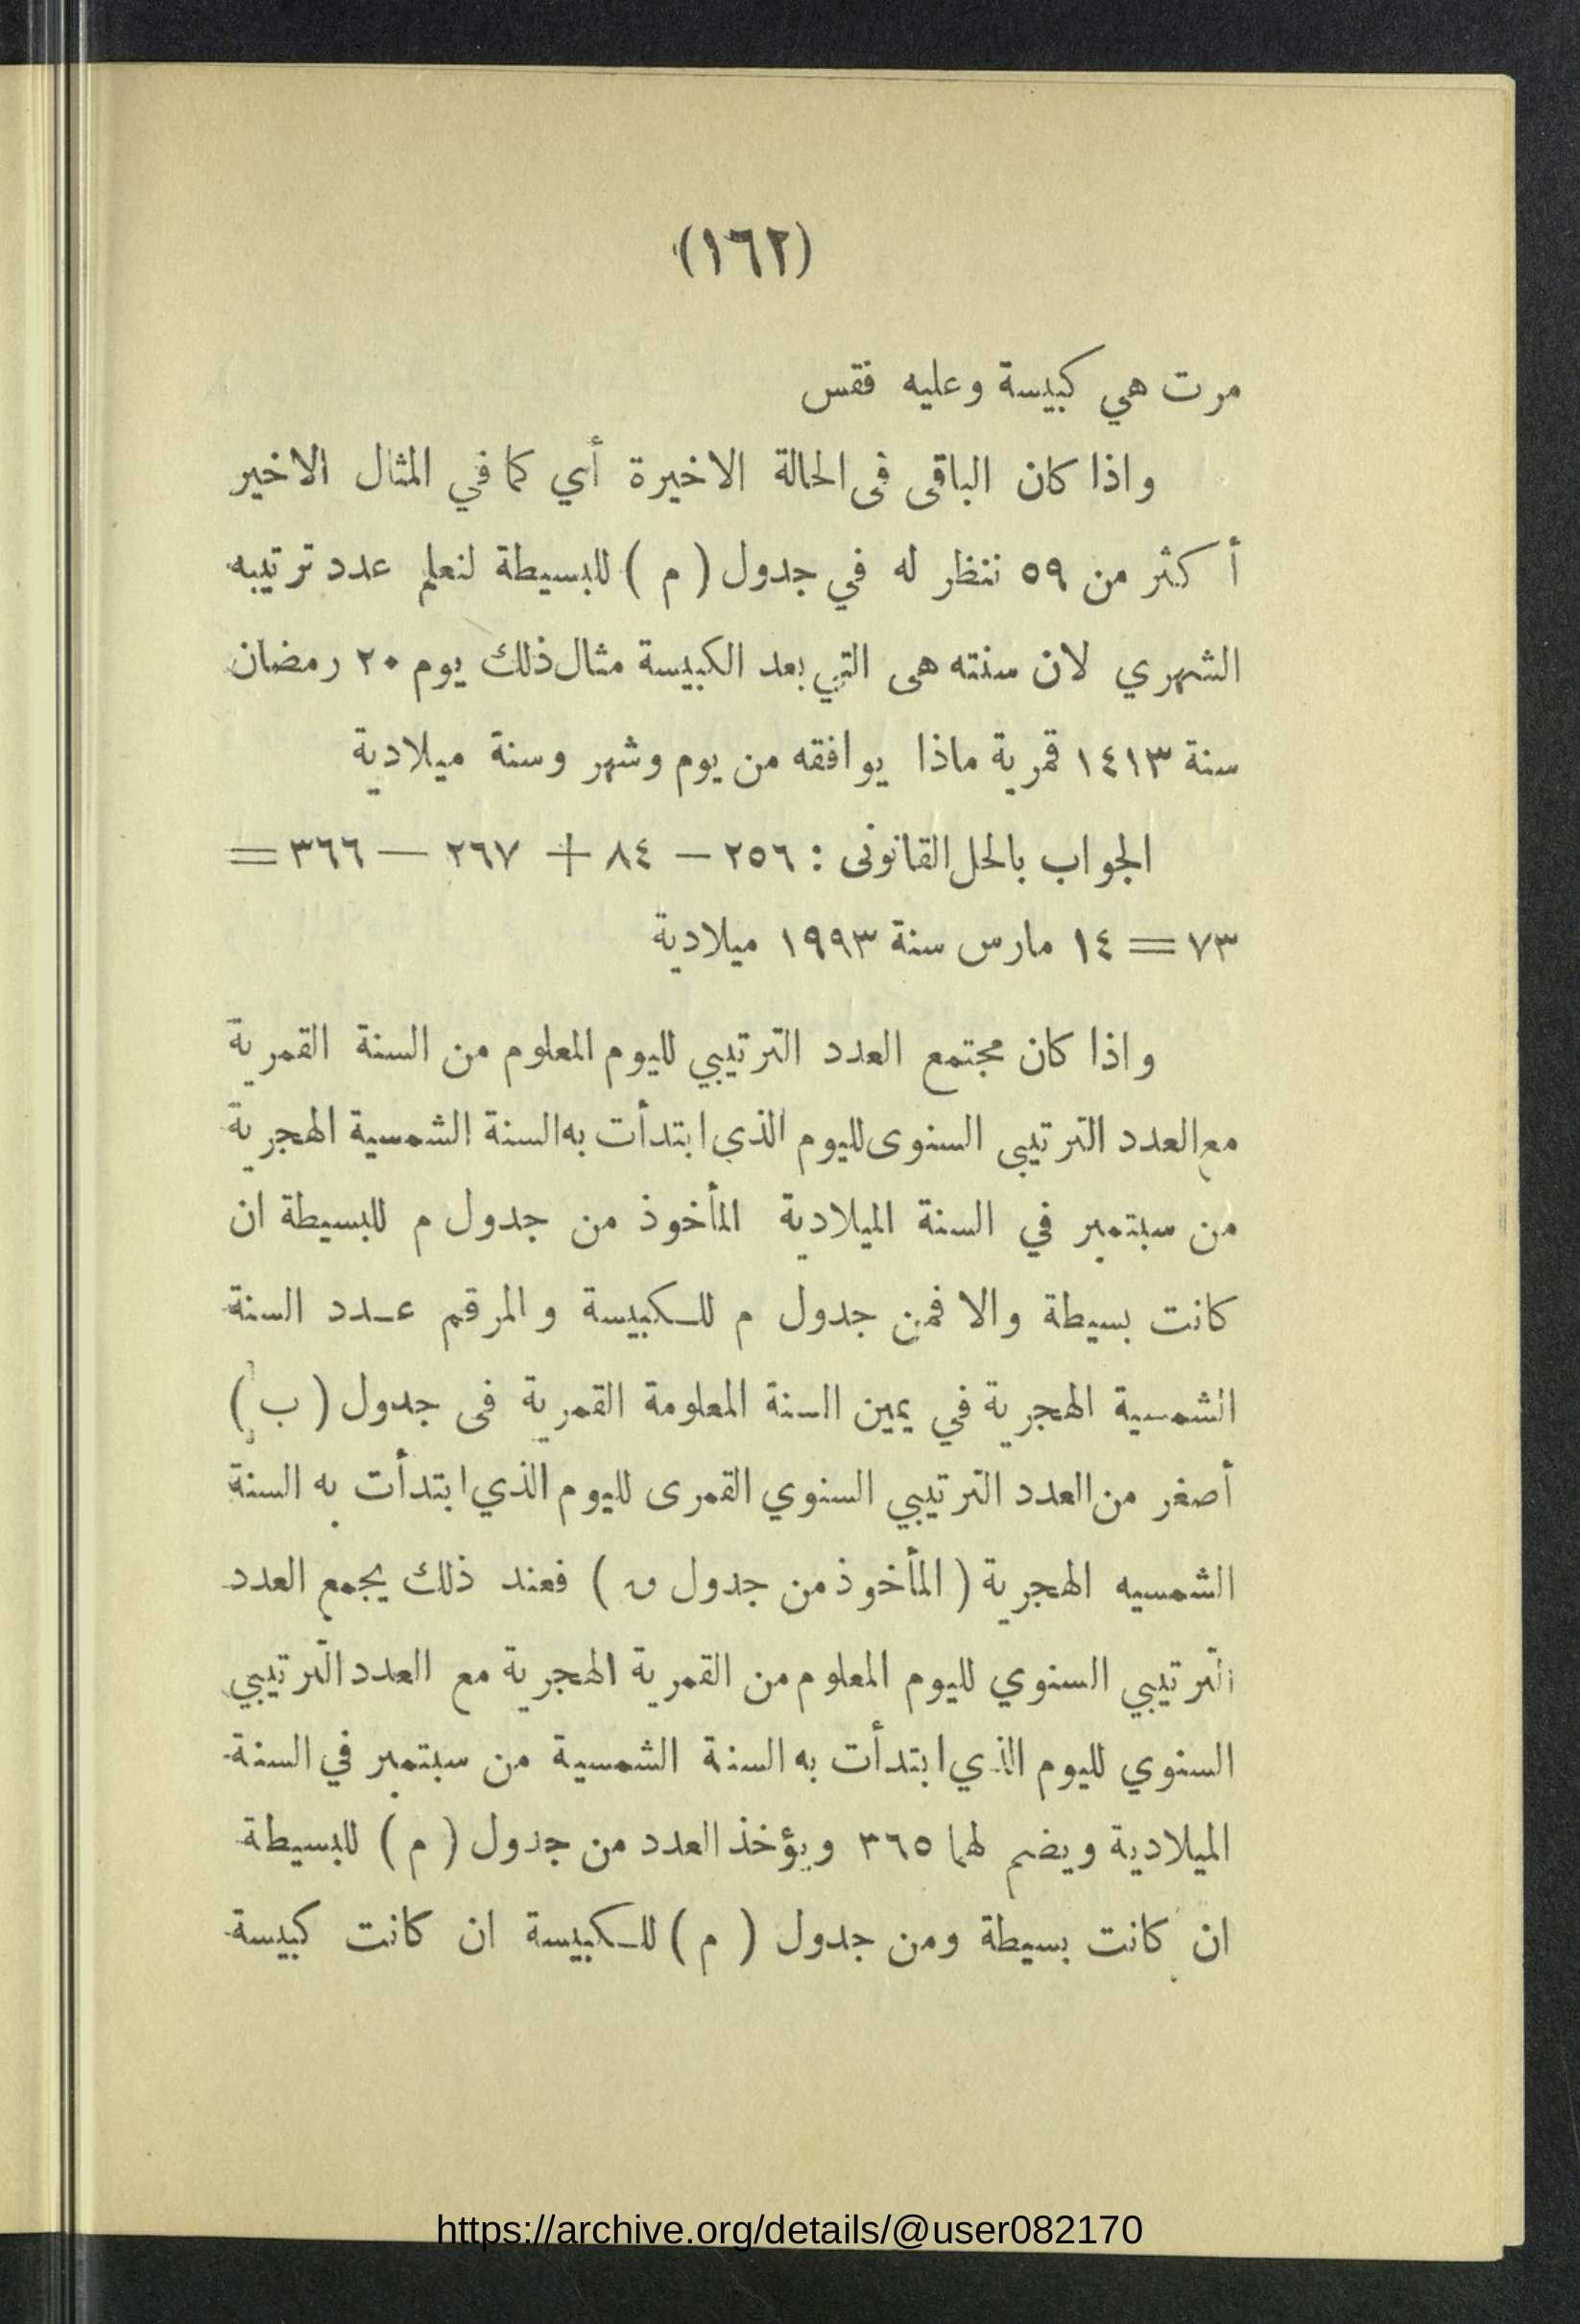 (١٦٢)
مرت هي كبيسة وعليه فقس
واذا كان الباقى فى الحالة الاخيرة أي كما في المثال الاخير
أكثر من ٥٩ ننظر له في جدول ( م ) للبسيطة لنعلم عدد ترتيبه
الشهري لان سنته هى التي بعد الكبيسة مثال ذلك يوم ٢٠ رمضان
سنة ١٤١٣ قمرية ماذا يوافقه من يوم وشهر وسنة ميلادية
الجواب بالحل القانونى : ٢٥٦ — ٨٤ + ٢٦٧ — ٣٦٦ =
٧٣ = ١٤ مارس سنة ١٩٩٣ ميلادية
واذا كان مجتمع العدد الترتيبي لليوم المعلوم من السنة القمرية
مع العدد الترتيبى السنوى لليوم الذي ابتدأت به السنة الشمسية الهجرية
من سبتمبر في السنة الميلادية المأخوذ من جدول م للبسيطة ان
كانت بسيطة والا فمن جدول م للكبيسة والمرقم عدد السنة
الشمسية الهجرية في يمين السنة المعلومة القمرية فى جدول ( ب )
أصغر من العدد الترتيبي السنوي القمرى لليوم الذي ابتدأت به السنة
الشمسيه الهجرية ( المأخوذ من جدول ق ) فعند ذلك يجمع العدد
الترتيبي السنوي لليوم المعلوم من القمرية الهجرية مع العدد الترتيبي
السنوي لليوم الذي ابتدأت به السنة الشمسية من سبتمبر في السنة
الميلادية ويضم لهما ٣٦٥ ويؤخذ العدد من جدول ( م ) للبسيطة
ان كانت بسيطة ومن جدول ( م ) للكبيسة ان كانت كبيسة
https://archive.org/details/@user082170